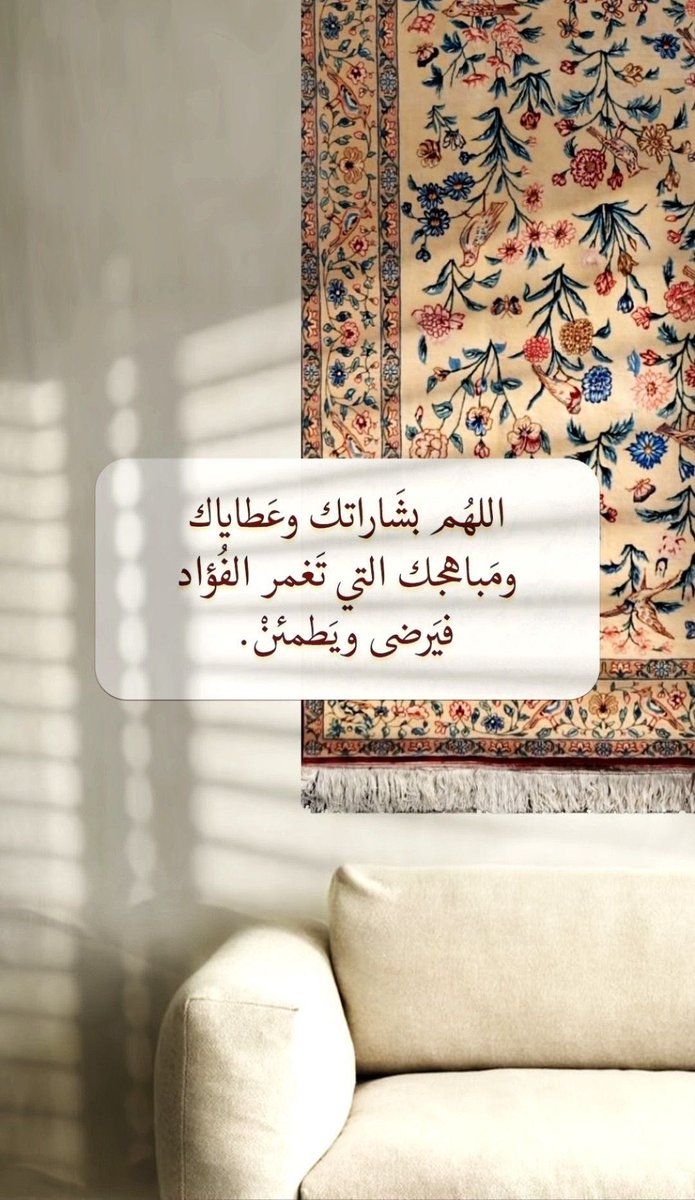 اللهُم بشَاراتك وعَطاياك
ومَباهجك التي تَغمر الفُؤاد
فيَرضى ويَطمئنْ.